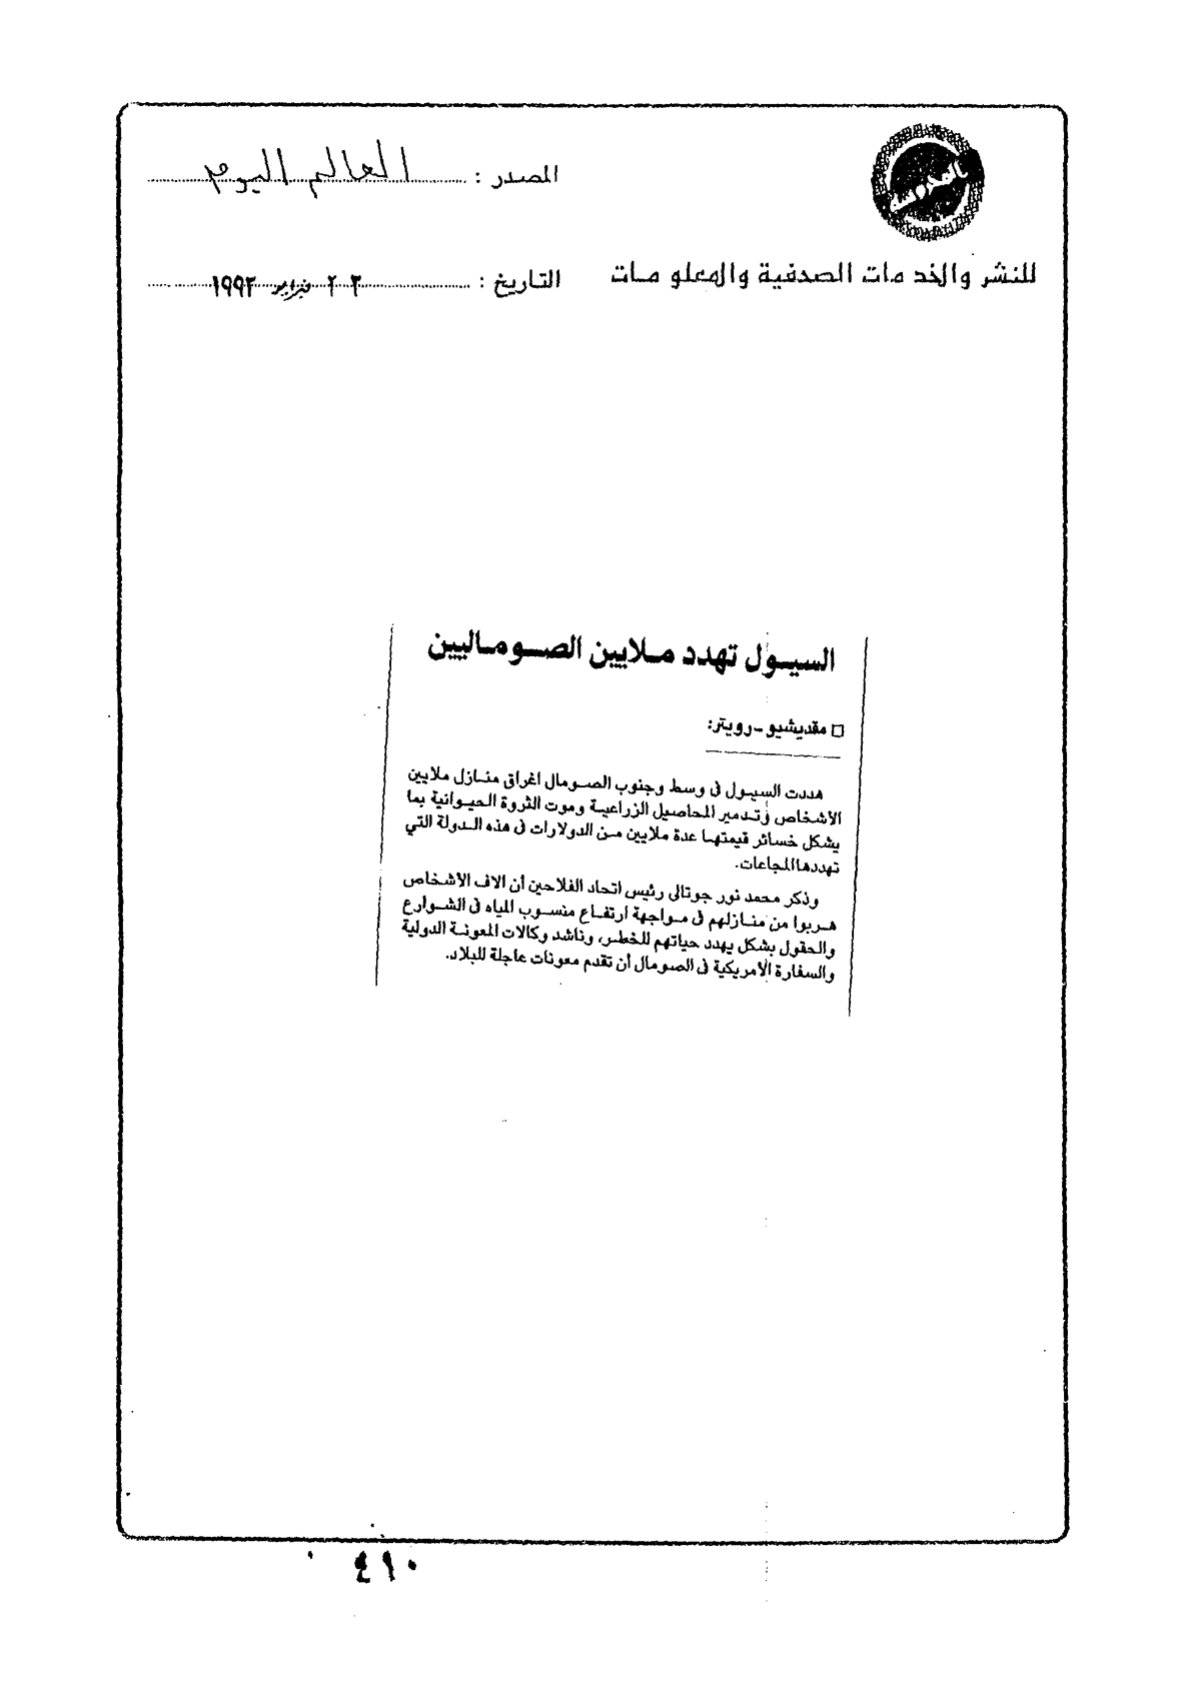 المصدر : العالم اليوم
للنشر والخدمات الصحفية والمعلومات
التاريخ : ٢٣ فبراير ١٩٩٣
السيول تهدد ملايين الصوماليين
□ مقديشيو ـ رويتر:
هددت السيول فى وسط وجنوب الصومال اغراق منازل ملايين
الأشخاص وتدمير المحاصيل الزراعية وموت الثروة الحيوانية بما
يشكل خسائر قيمتها عدة ملايين من الدولارات فى هذه الدولة التي
تهددها المجاعات.
وذكر محمد نور جوتالى رئيس اتحاد الفلاحين أن الاف الأشخاص
هربوا من منازلهم فى مواجهة ارتفاع منسوب المياه فى الشوارع
والحقول بشكل يهدد حياتهم للخطر، وناشد وكالات المعونة الدولية
والسفارة الأمريكية فى الصومال أن تقدم معونات عاجلة للبلاد.
٤١٠